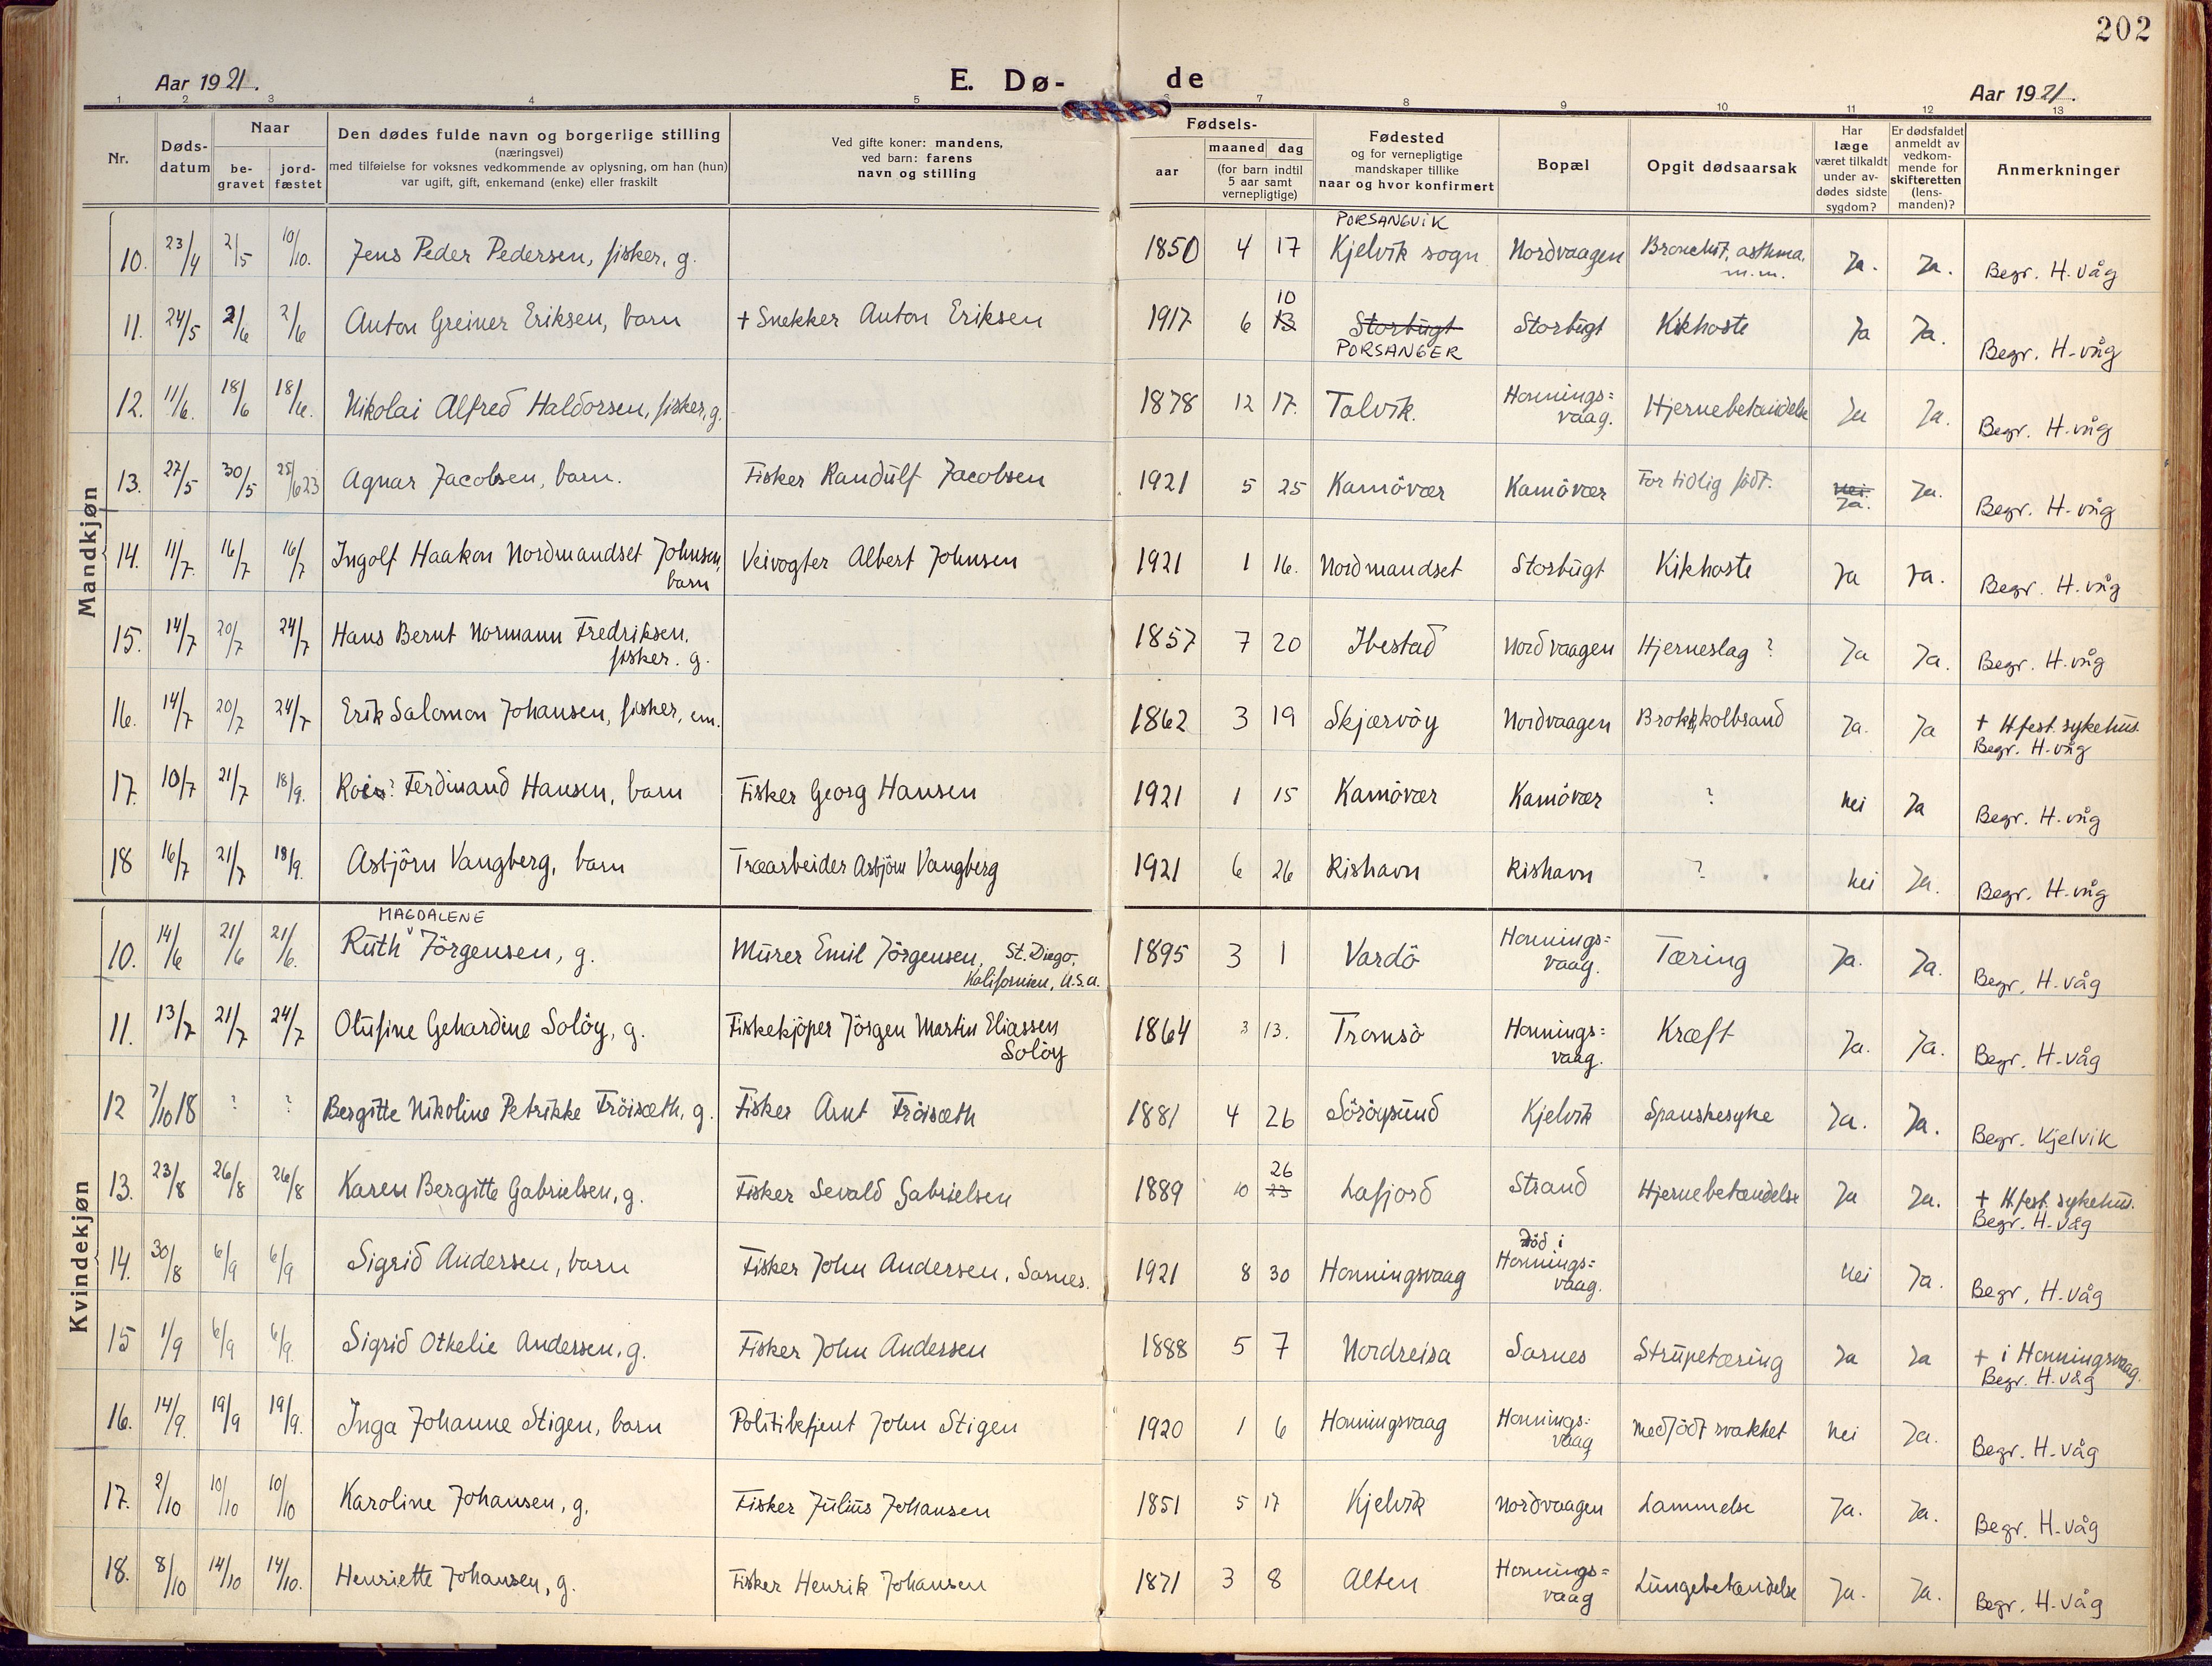 202
Aar 1921.
E. Dø- de
Aar 1921.
1 2 3 4 5 6 7 8 9 10 11 12 13
Nr.
Døds-datum
Naar
be-gravet
jord-fæstet
Den dødes fulde navn og borgerlige stilling
(næringsvei)
med tilføielse for voksnes vedkommende av oplysning, om han (hun)
var ugift, gift, enkemand (enke) eller fraskilt
Ved gifte koner: mandens,
ved barn: farens
navn og stilling
Fødsels-
aar
maaned dag
(for barn indtil
5 aar samt
vernepligtige)
Fødested
og for vernepligtige
mandskaper tillike
naar og hvor konfirmert
Bopæl
Opgit dødsaarsak
Har
læge
været tilkaldt
under av-
dødes sidste
sygdom?
Er dødsfaldet
anmeldt av
vedkom-
mende for
skifteretten
(lens-
manden)?
Anmerkninger
Mandkjøn
10. 23/4 2/5 10/10. Jens Peder Pedersen, fisker, g. 1850 4 17 PORSANGVIK Kjelvik sogn Nordvaagen Bronchit, asthma, m.m. Ja. Ja. Begr. H.våg
11. 24/5 2/6 2/6 Anton Greiner Eriksen, barn + Snekker Anton Eriksen 1917 6 10 13 Storbugt PORSANGER Storbugt Kikhoste Ja Ja. Begr. H-våg
12. 11/6. 18/6 18/6. Nikolai Alfred Haldorsen, fisker, g. 1878 12 17. Talvik. Honnings=vaag. Hjernebetændelse Ja Ja. Begr. H.våg
13. 27/5 30/5 25/6 23 Agnar Jacobsen, barn. Fisker Randulf Jacobsen 1921 5 25 Kamövær Kamövær For tidlig födt. Nei. Ja. Ja. Begr. H-våg
14. 11/7. 16/7 16/7 Ingolf Haakon Nordmandset Johnsen, barn Veivogter Albert Johnsen 1921 1 16. Nordmandset Storbugt Kikhoste Ja Ja. Begr. H-våg
15. 14/7 20/7 24/7 Hans Bernt Normann Fredriksen, fisker. g. 1857 7 20 Ibestad Nordvaagen Hjerneslag ? Ja Ja. Begr. H.våg
16. 14/7 20/7 24/7 Erik Salomon Johansen, fisker, em. 1862 3 19 Skjærvöy Nordvaagen Brokkkolbrand Ja. Ja + H.fest. sykehus. Begr. H-våg
17. 10/7 21/7 18/9. Ferdinand Hansen, barn Fisker Georg Hansen 1921 1 15 Kamövær Kamövær ? Nei Ja Begr. H-våg
18 16/7 21/7 18/9. Asbjörn Vangberg, barn Træarbeider Asbjörn Vangberg 1921 6 26 Rishavn Rishavn ? Nei Ja. Begr. H-våg
Kvindekjøn
10. 14/6 21/6 21/6. Ruth MAGDALENE Jörgensen, g. Murer Emil Jörgensen, St. Diego, Kalifornien, U.S.A. 1895 3 1 Vardö Honnings=vaag. Tæring Ja. Ja. Begr. H-våg
11. 13/7 21/7 24/7 Olufine Gehardine Solöy, g. Fiskekjöper Jörgen Martin Eliassen Solöy 1864 3 13. Tromsö Honnings=vaag. Kræft Ja. Ja. Begr. H-våg
12 7/10 18 ? ? Bergitte Nikoline Petrikke Fröisæth, g. Fisker Arnt Fröisæth 1881 4 26 Söröysund Kjelvik Spanskesyke Ja. Ja. Begr. Kjelvik
13. 23/8 26/8 26/8 Karen Bergitte Gabrielsen, g. Fisker Sevald Gabrielsen 1889 10 26 23 Lafjord Strand Hjernebetændelse Ja Ja. + H.fest. sykehus. Begr. H-våg
14. 30/8 6/9 6/9 Sigrid Andersen, barn Fisker John Andersen, Sarnes. 1921 8 30 Honningsvaag Död i Honnings=vaag. Nei Ja. Begr, H-våg
15 1/9 6/9 6/9. Sigrid Othelie Andersen, g. Fisker John Andersen 1888 5 7 Nordreisa Sarnes Strupetæring Ja Ja + i Honningsvaag. Begr. H-våg
16. 14/9. 19/9 19/9. Inga Johanne Stigen, barn Politibetjent John Stigen 1920 1 6 Honningsvaag Honnings=vaag Medfödt svakhet Nei Ja. Begr. H-våg
17. 2/10 10/10 10/10 Karoline Johansen, g. Fisker Julius Johansen 1851 5 17 Kjelvik Nordvaagen Lammelse Ja. Ja. Begr. H-våg
18. 8/10 14/10 14/10. Henriette Johansen, g. Fisker Henrik Johansen 1871 3 8 Alten Honnings=vaag Lungebetændelse Ja. Ja. Begr. H-våg